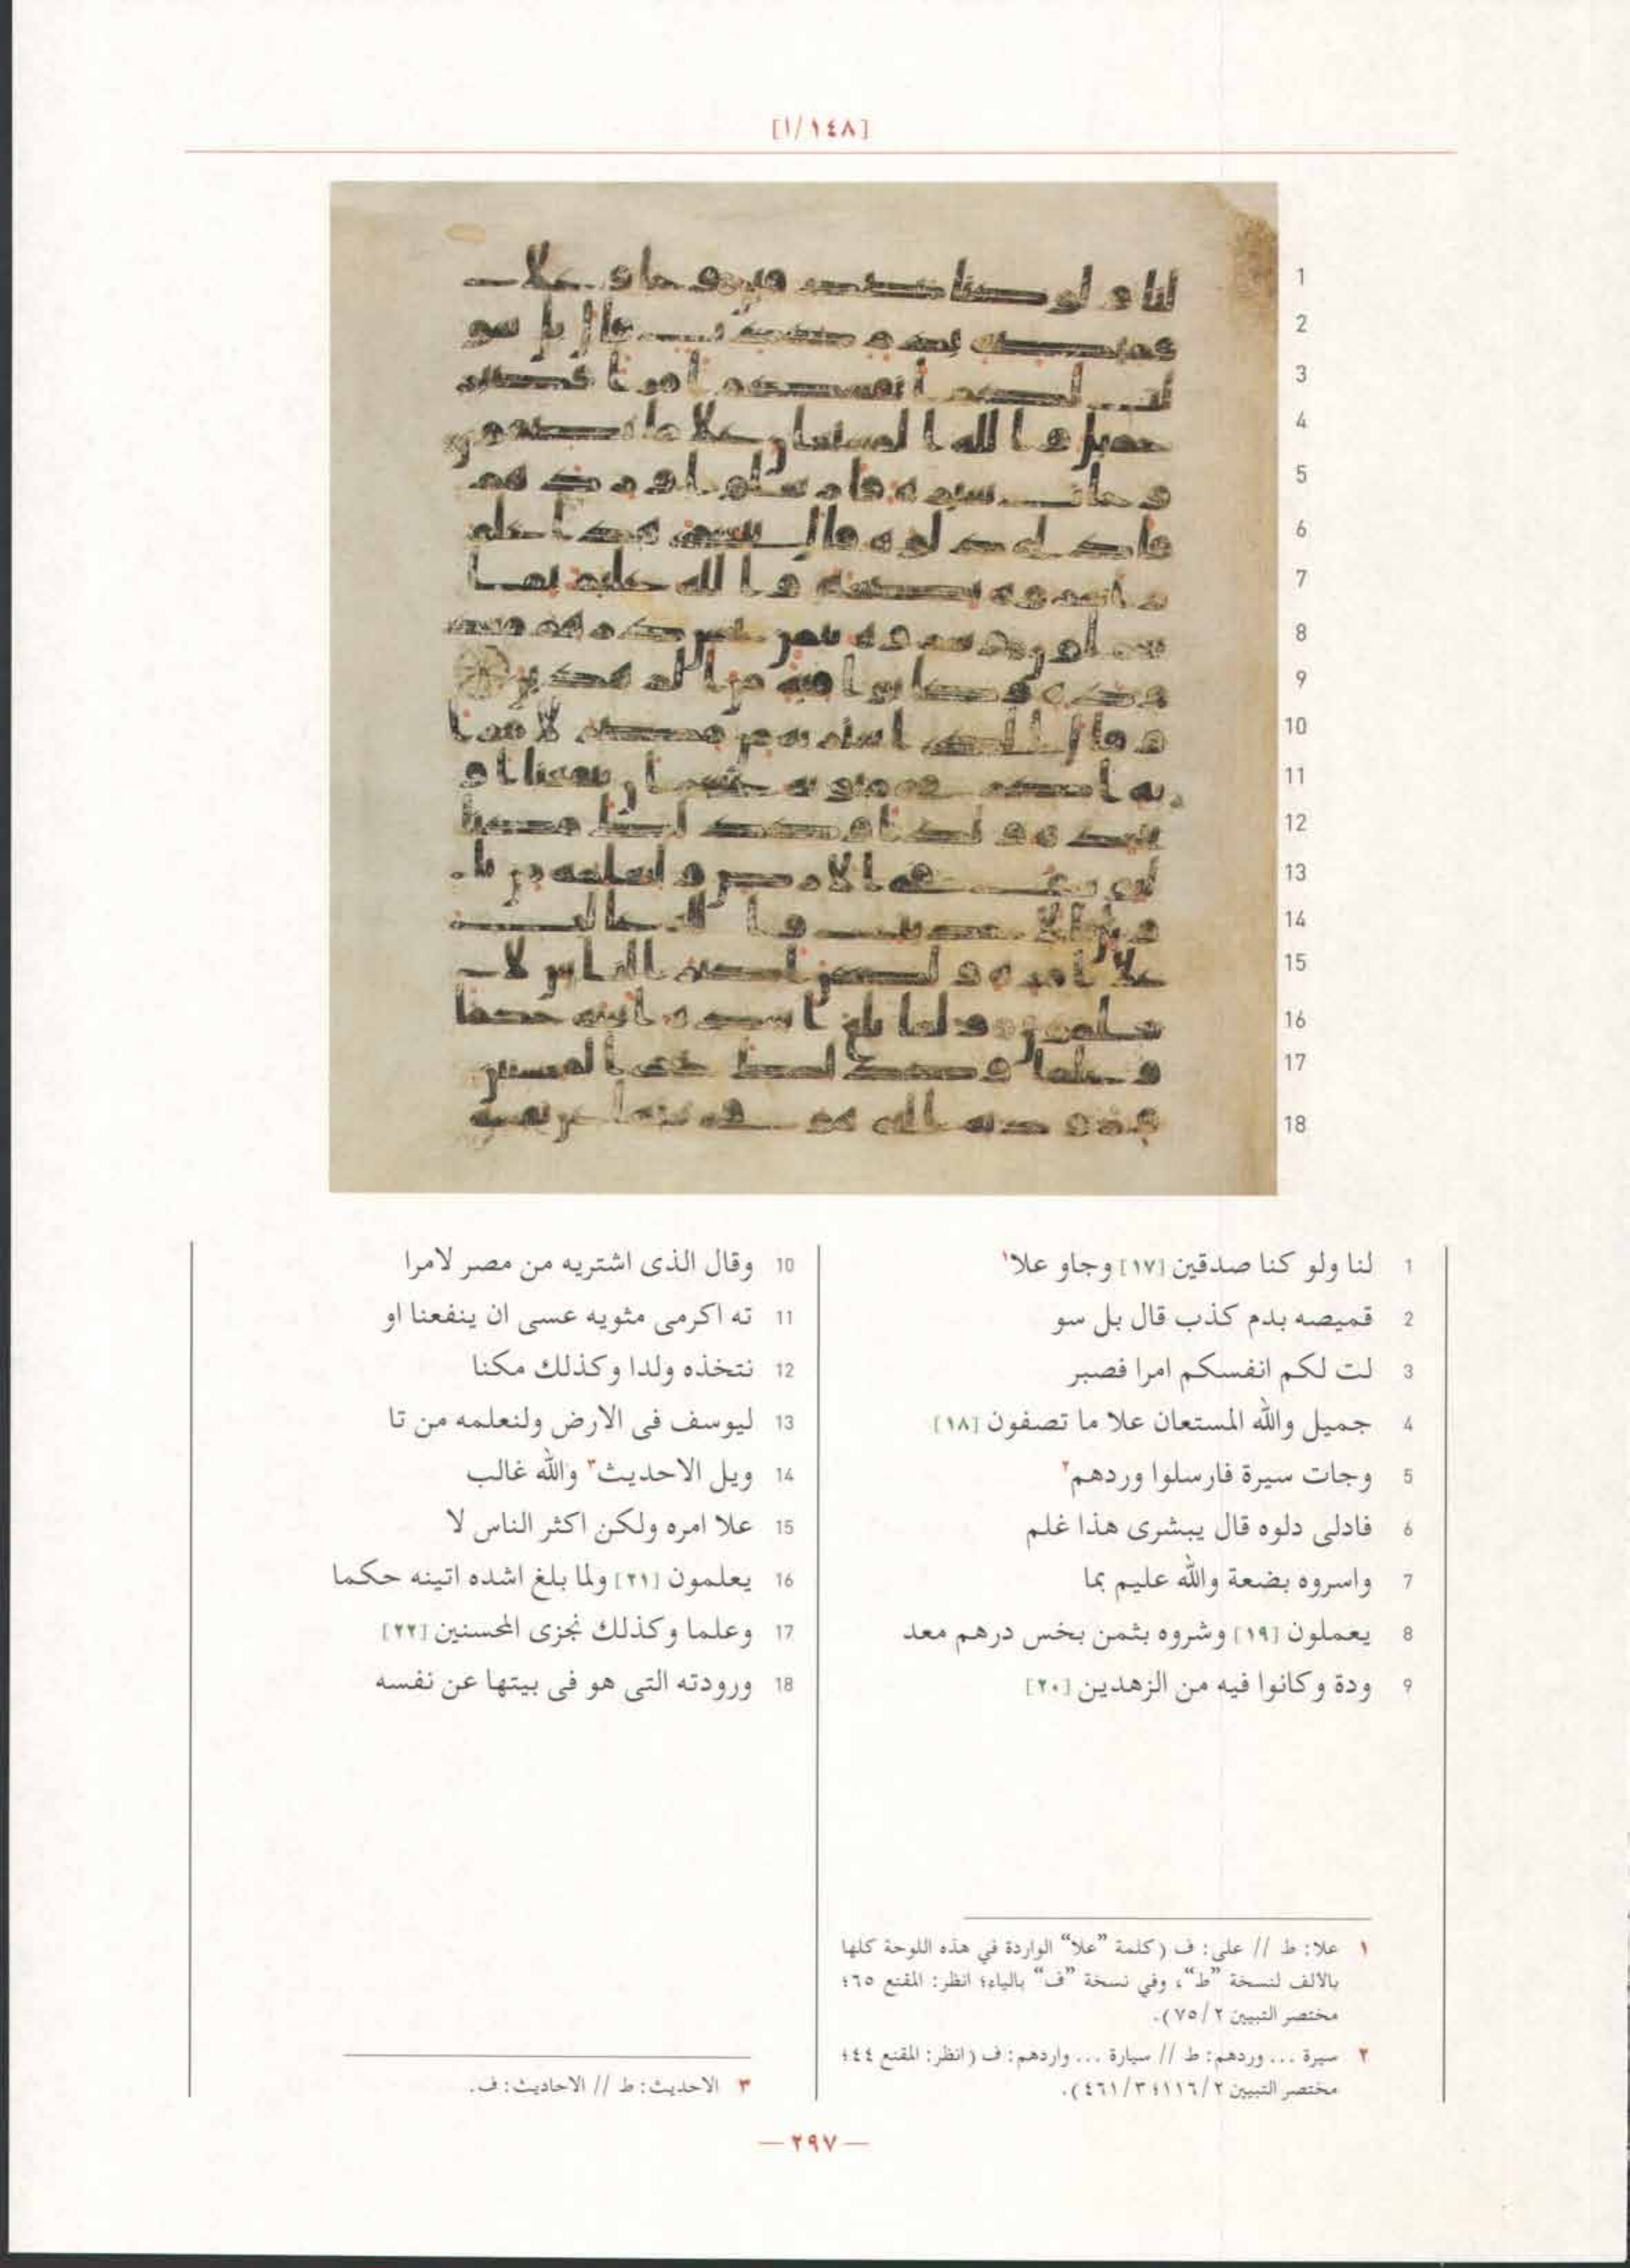 [١٤٨/ا]
1 لنا ولو كنا صدقين [١٧] وجاو علا١
2 قميصه بدم كذب قال بل سو
3 لت لكم انفسكم امرا فصبر
4 جميل والله المستعان علا ما تصفون [١٨]
5 وجات سيرة فارسلوا وردهم٢
6 فادلى دلوه قال يبشرى هذا غلم
7 واسروه بضعة والله عليم بما
8 يعملون [١٩] وشروه بثمن بخس درهم معد
9 ودة وكانوا فيه من الزهدين [٢٠]
10 وقال الذى اشتريه من مصر لامرا
11 ته اكرمى مثويه عسى ان ينفعنا او
12 نتخذه ولدا وكذلك مكنا
13 ليوسف فى الارض ولنعلمه من تا
14 ويل الاحديث٣ والله غالب
15 علا امره ولكن اكثر الناس لا
16 يعلمون [٢١] ولما بلغ اشده اتينه حكما
17 وعلما وكذلك نجزى المحسنين [٢٢]
18 ورودته التى هو فى بيتها عن نفسه
١ علا: ط // على: ف (كلمة ”علا“ الواردة في هذه اللوحة كلها
بالألف لنسخة ”ط“، وفي نسخة ”ف“ بالياء؛ انظر: المقنع ٦٥؛
مختصر التبيين ٧٥/٢).
٢ سيرة ... وردهم: ط // سيارة ... واردهم: ف (انظر: المقنع ٤٤؛
مختصر التبيين ١١٦/٢؛ ٤٦١/٣).
٣ الاحديث: ط // الاحاديث: ف.
— ٢٩٧ —